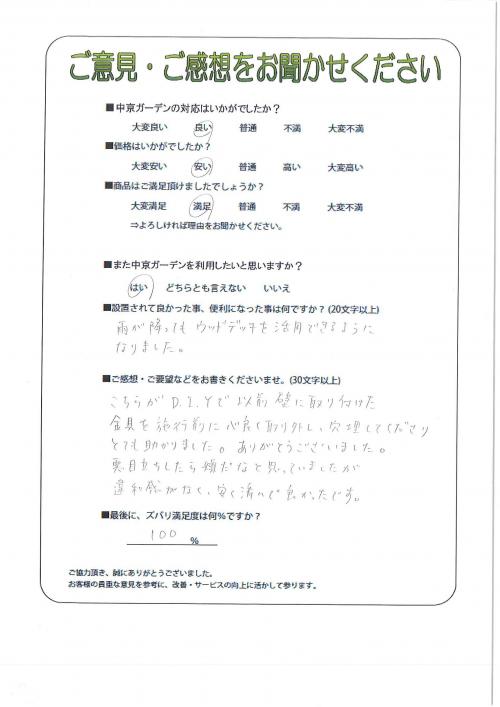 ご意見・ご感想をお聞かせください
■中京ガーデンの対応はいかがでしたか？
大変良い 良い 普通 不満 大変不満
■価格はいかがでしたか？
大変安い 安い 普通 高い 大変高い
■商品はご満足頂けましたでしょうか？
大変満足 満足 普通 不満 大変不満
⇒よろしければ理由をお聞かせください。
■また中京ガーデンを利用したいと思いますか？
はい どちらとも言えない いいえ
■設置されて良かった事、便利になった事は何ですか？(20文字以上)
雨が降っても ウッドデッキを活用できるように
なりました。
■ご感想・ご要望などをお書きくださいませ。(30文字以上)
こちらが D.I.Yで以前 壁に取り付けた
金具を施行前に心良く取り外し、穴埋してくださり
とても助かりました。ありがとうございました。
悪目立ちしたら嫌だなと思っていましたが
違和感がなく、安く済んで良かったです。
■最後に、ズバリ満足度は何%ですか？
100 %
ご協力頂き、誠にありがとうございました。
お客様の貴重な意見を参考に、改善・サービスの向上に活かして参ります。